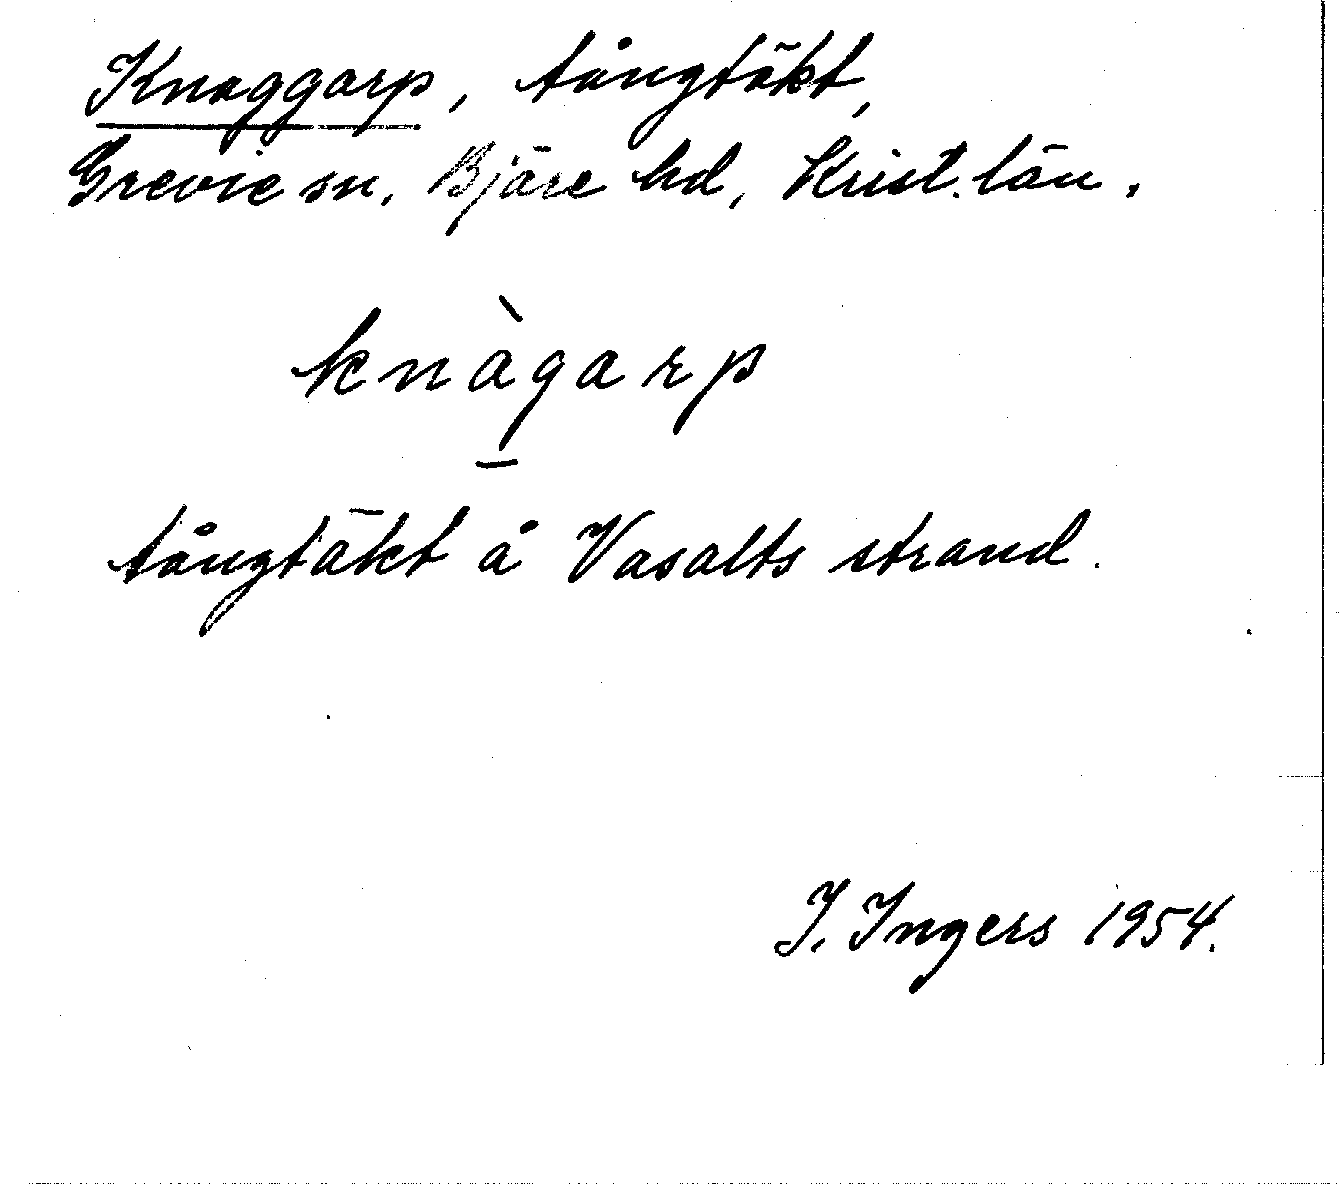 Knaggarp, tångtäkt,
Grevie sn. Bjäre hd, Krist. län.
knàg̱arp
tångtäkt å Vasalts strand.
I. Ingers 1954.